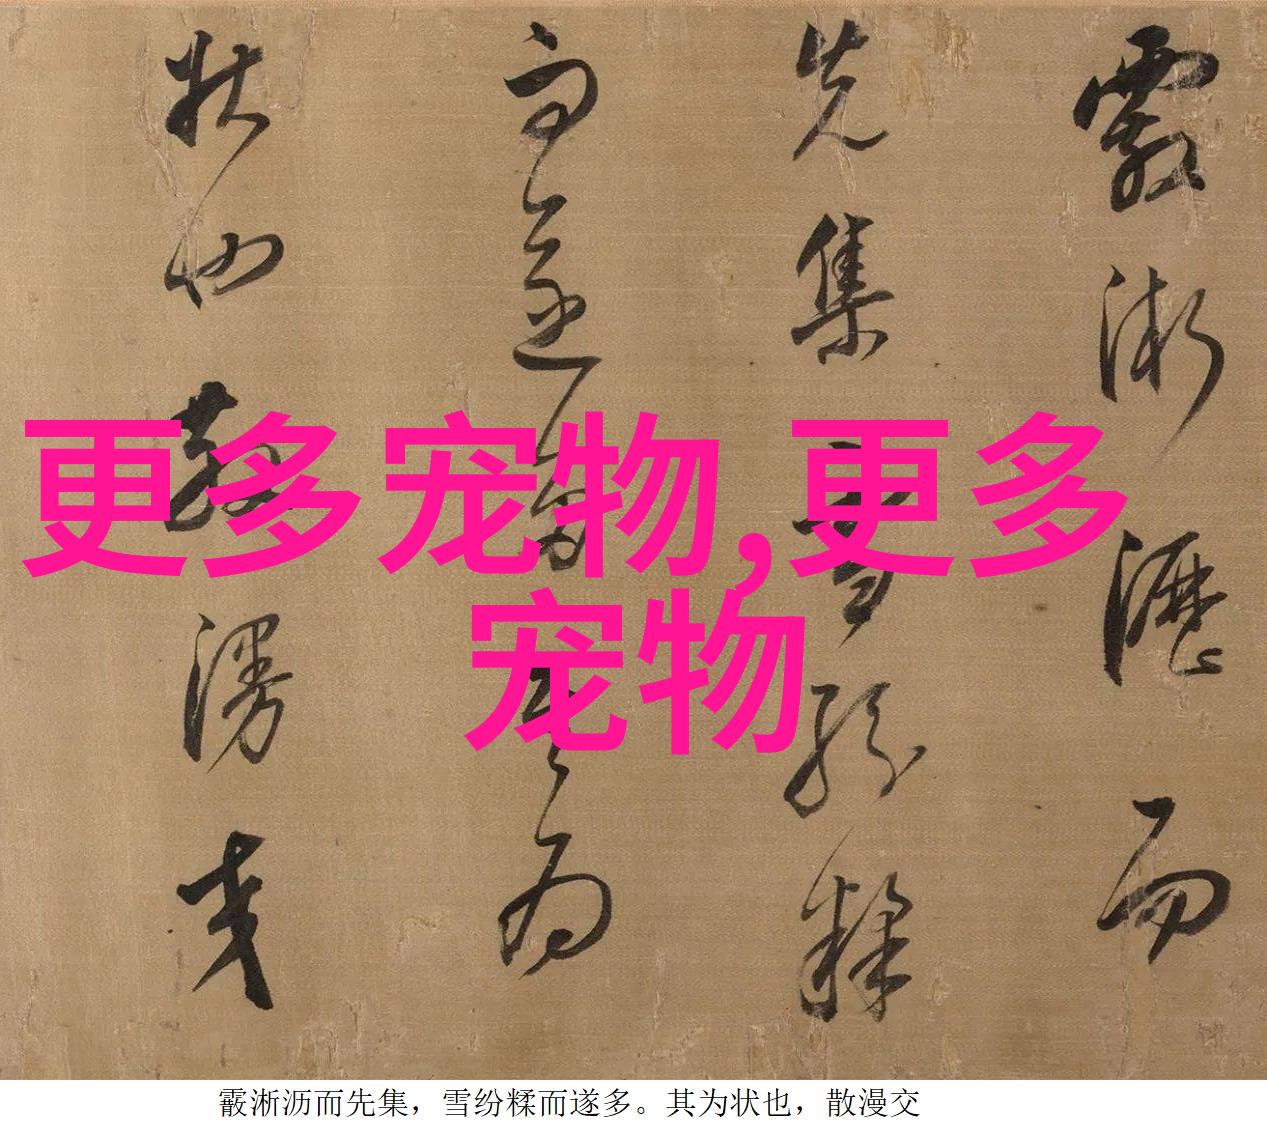 霰淅瀝而
先集雪紛糅
而遂多其為
狀也散漫交
更多宠物,更多
宠物
霰淅沥而先集，雪纷糅而遂多。其为状也，散漫交